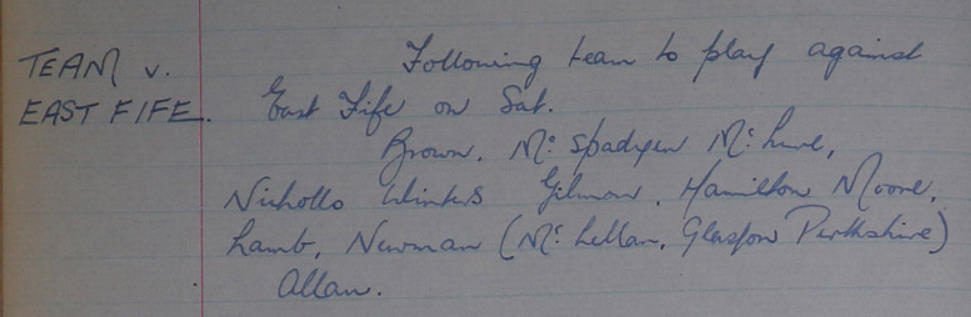 TEAM v.
EAST FIFE.
Following team to play against
East Fife on Sat.
Brown, Mc Spadyen Mc Lure,
Nicholls Winters Gilmour, Hamilton Moore,
Lamb, Newman (Mc Lellan, Glasgow Perthshire)
Allan.